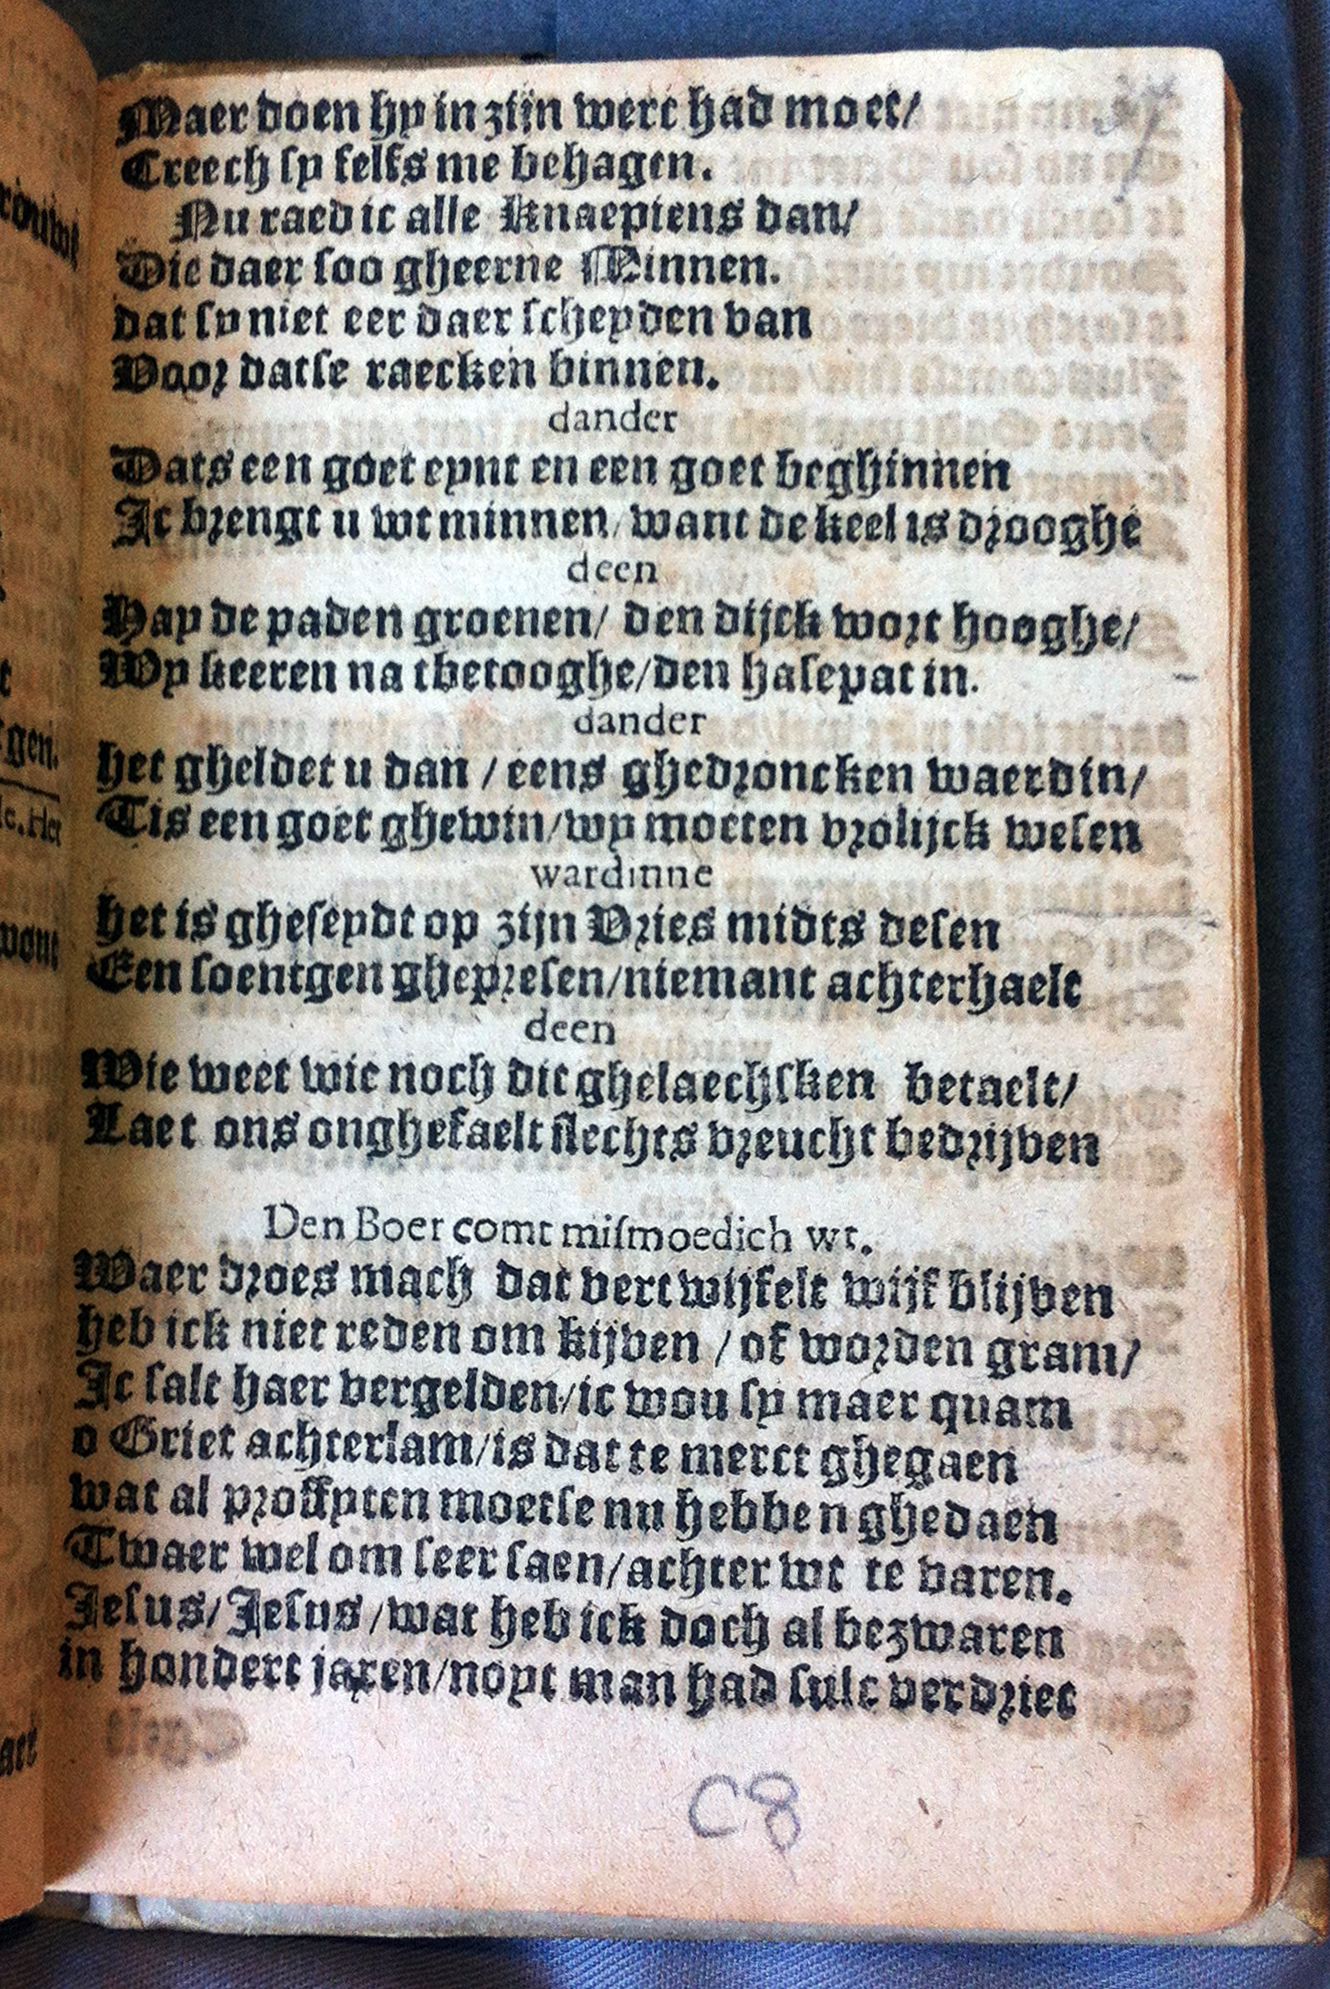 Maer doen hy in zijn werc had moet/
Creech sy selfs me behagen.
Nu raed ic alle Knaeptens dan/
Die daer soo gheerne Minnen.
dat sy niet eer daer scheyden van
Voor datse raecken binnen.
dander
Dats een goet eynt en een goet beghinnen
Ic brengt u wt minnen/want de keel is drooghe
deen
Hay de paden groenen/ den dijck wort hooghe/
Wy keeren na tbetooghe/den hasepat in.
dander
het gheldet u dan / eens ghedroncken waerdin/
Tis een goet ghewin/wy moeten vrolijck wesen
wardinne
het is gheseydt op zijn Vries midts desen
Een soentgen ghepresen/niemant achterhaelt
deen
Wie weet wie noch dit ghelaechsken betaelt/
Laet ons onghefaelt slechts vreucht bedrijven
Den Boer comt mismoedich wt.
Waer droes mach dat vertwijfelt wijf blijven
heb ick niet reden om kijven / of worden gram/
Ic salt haer vergelden/ic wou sy maer quam
o Griet achterlam/is dat te merct ghegaen
wat al proffyten moetse nu hebben ghedaen
Twaer wel om seer saen/achter wt te varen.
Jesus/Jesus/wat heb ick doch al bezwaren
in hondert jaren/noyt man had sulc verdriet
C8